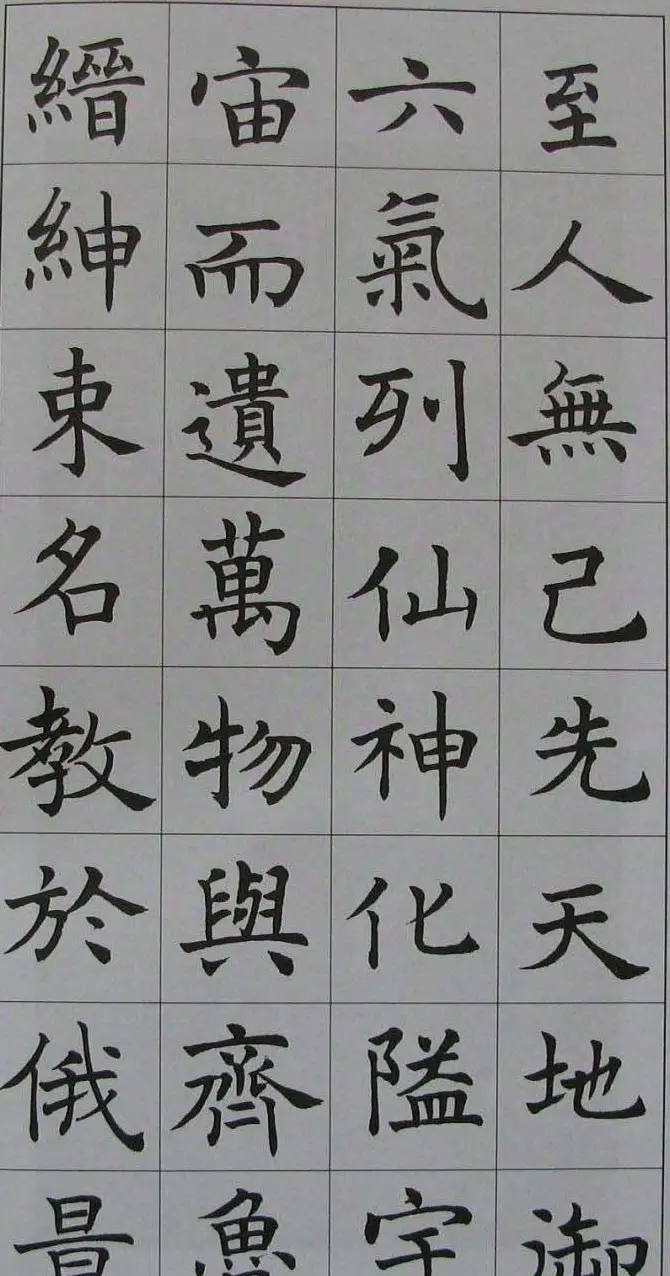 至人無己先天地御
六氣列仙神化隘宇
宙而遺萬物與齊魯
縉紳束名教於俄